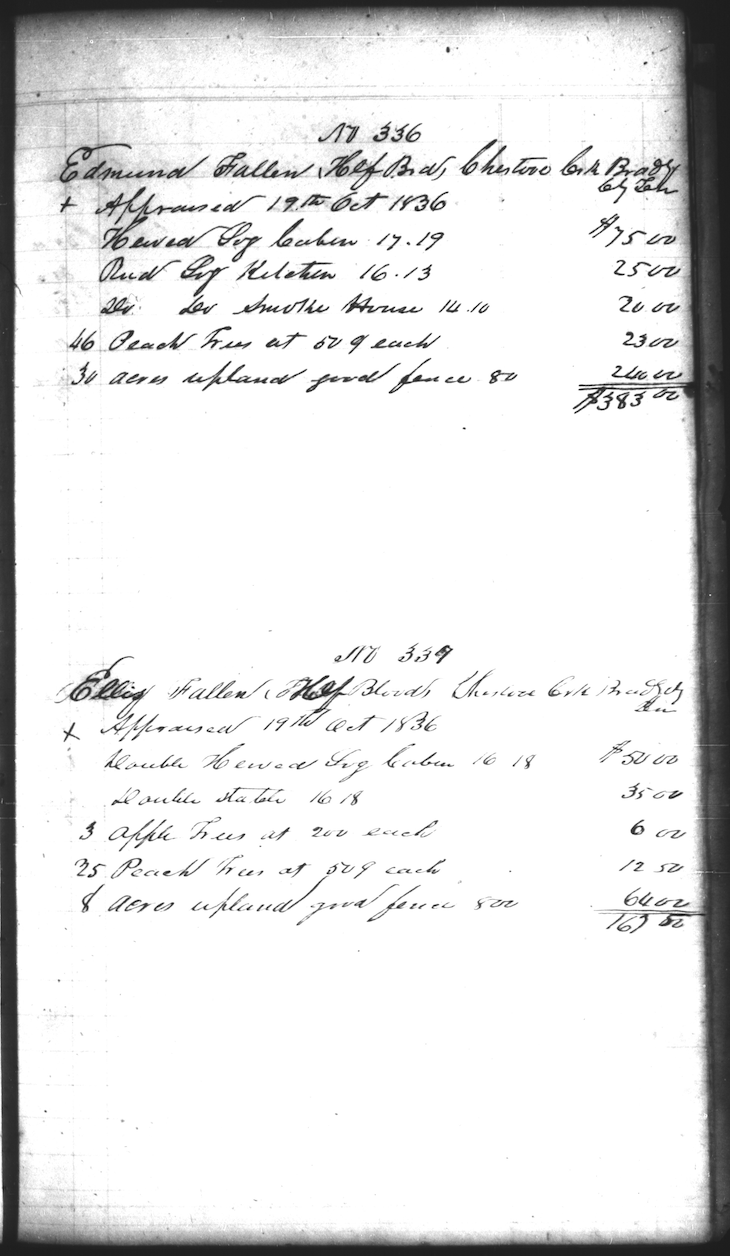 No 336
Edmund Fallen, Half Bred, Chestooe Crk Bradly
Cty Ten
+ Appraised 19th Oct 1836
Hewed Log Cabin 17.19 $75 00
Rud Log Kitchen 16.13 25 00
Do Do Smoke House 14.10 20.00
46 Peach Trees at 50 ¢ each 23 00
30 acres upland good fence 80 240 00
$383 00
No 337
Fallen, Half Bloods Chestooe Crk Bradly Cty
Ten
+ Appraised 19th Oct 1836
Double Hewed Log Cabin 16 18 $50 00
Double Stable 16 18 35 00
3 Apple Trees at 200 each 6 00
25 Peach Trees at 50 ¢ each 12 50
8 acres upland good fence 800 64 00
167 50